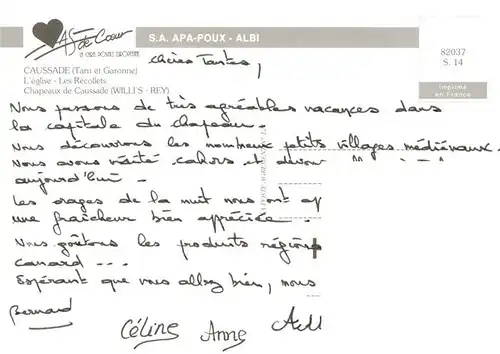 AS de Cœur
LA CARTE POSTALE EUROPÉENNE
S.A. APA-POUX - ALBI
82037
S. 14
Imprimé
en France
CAUSSADE (Tarn et Garonne)
L'église - Les Récollets
Chapeaux de Caussade (WILLI'S - REY)
Chères Tantes,
Nous passons de très agréables vacances dans
la capitale du chapeau.
Nous découvrons les nombreux petits villages médiévaux.
Nous avons visité Cahors et
aujourd'hui
Les orages de la nuit nous ont
une fraîcheur bien appréciée.
Nous goûtons les produits
canard ...
Espérant que vous allez bien, nous
Bernard
Céline Anne